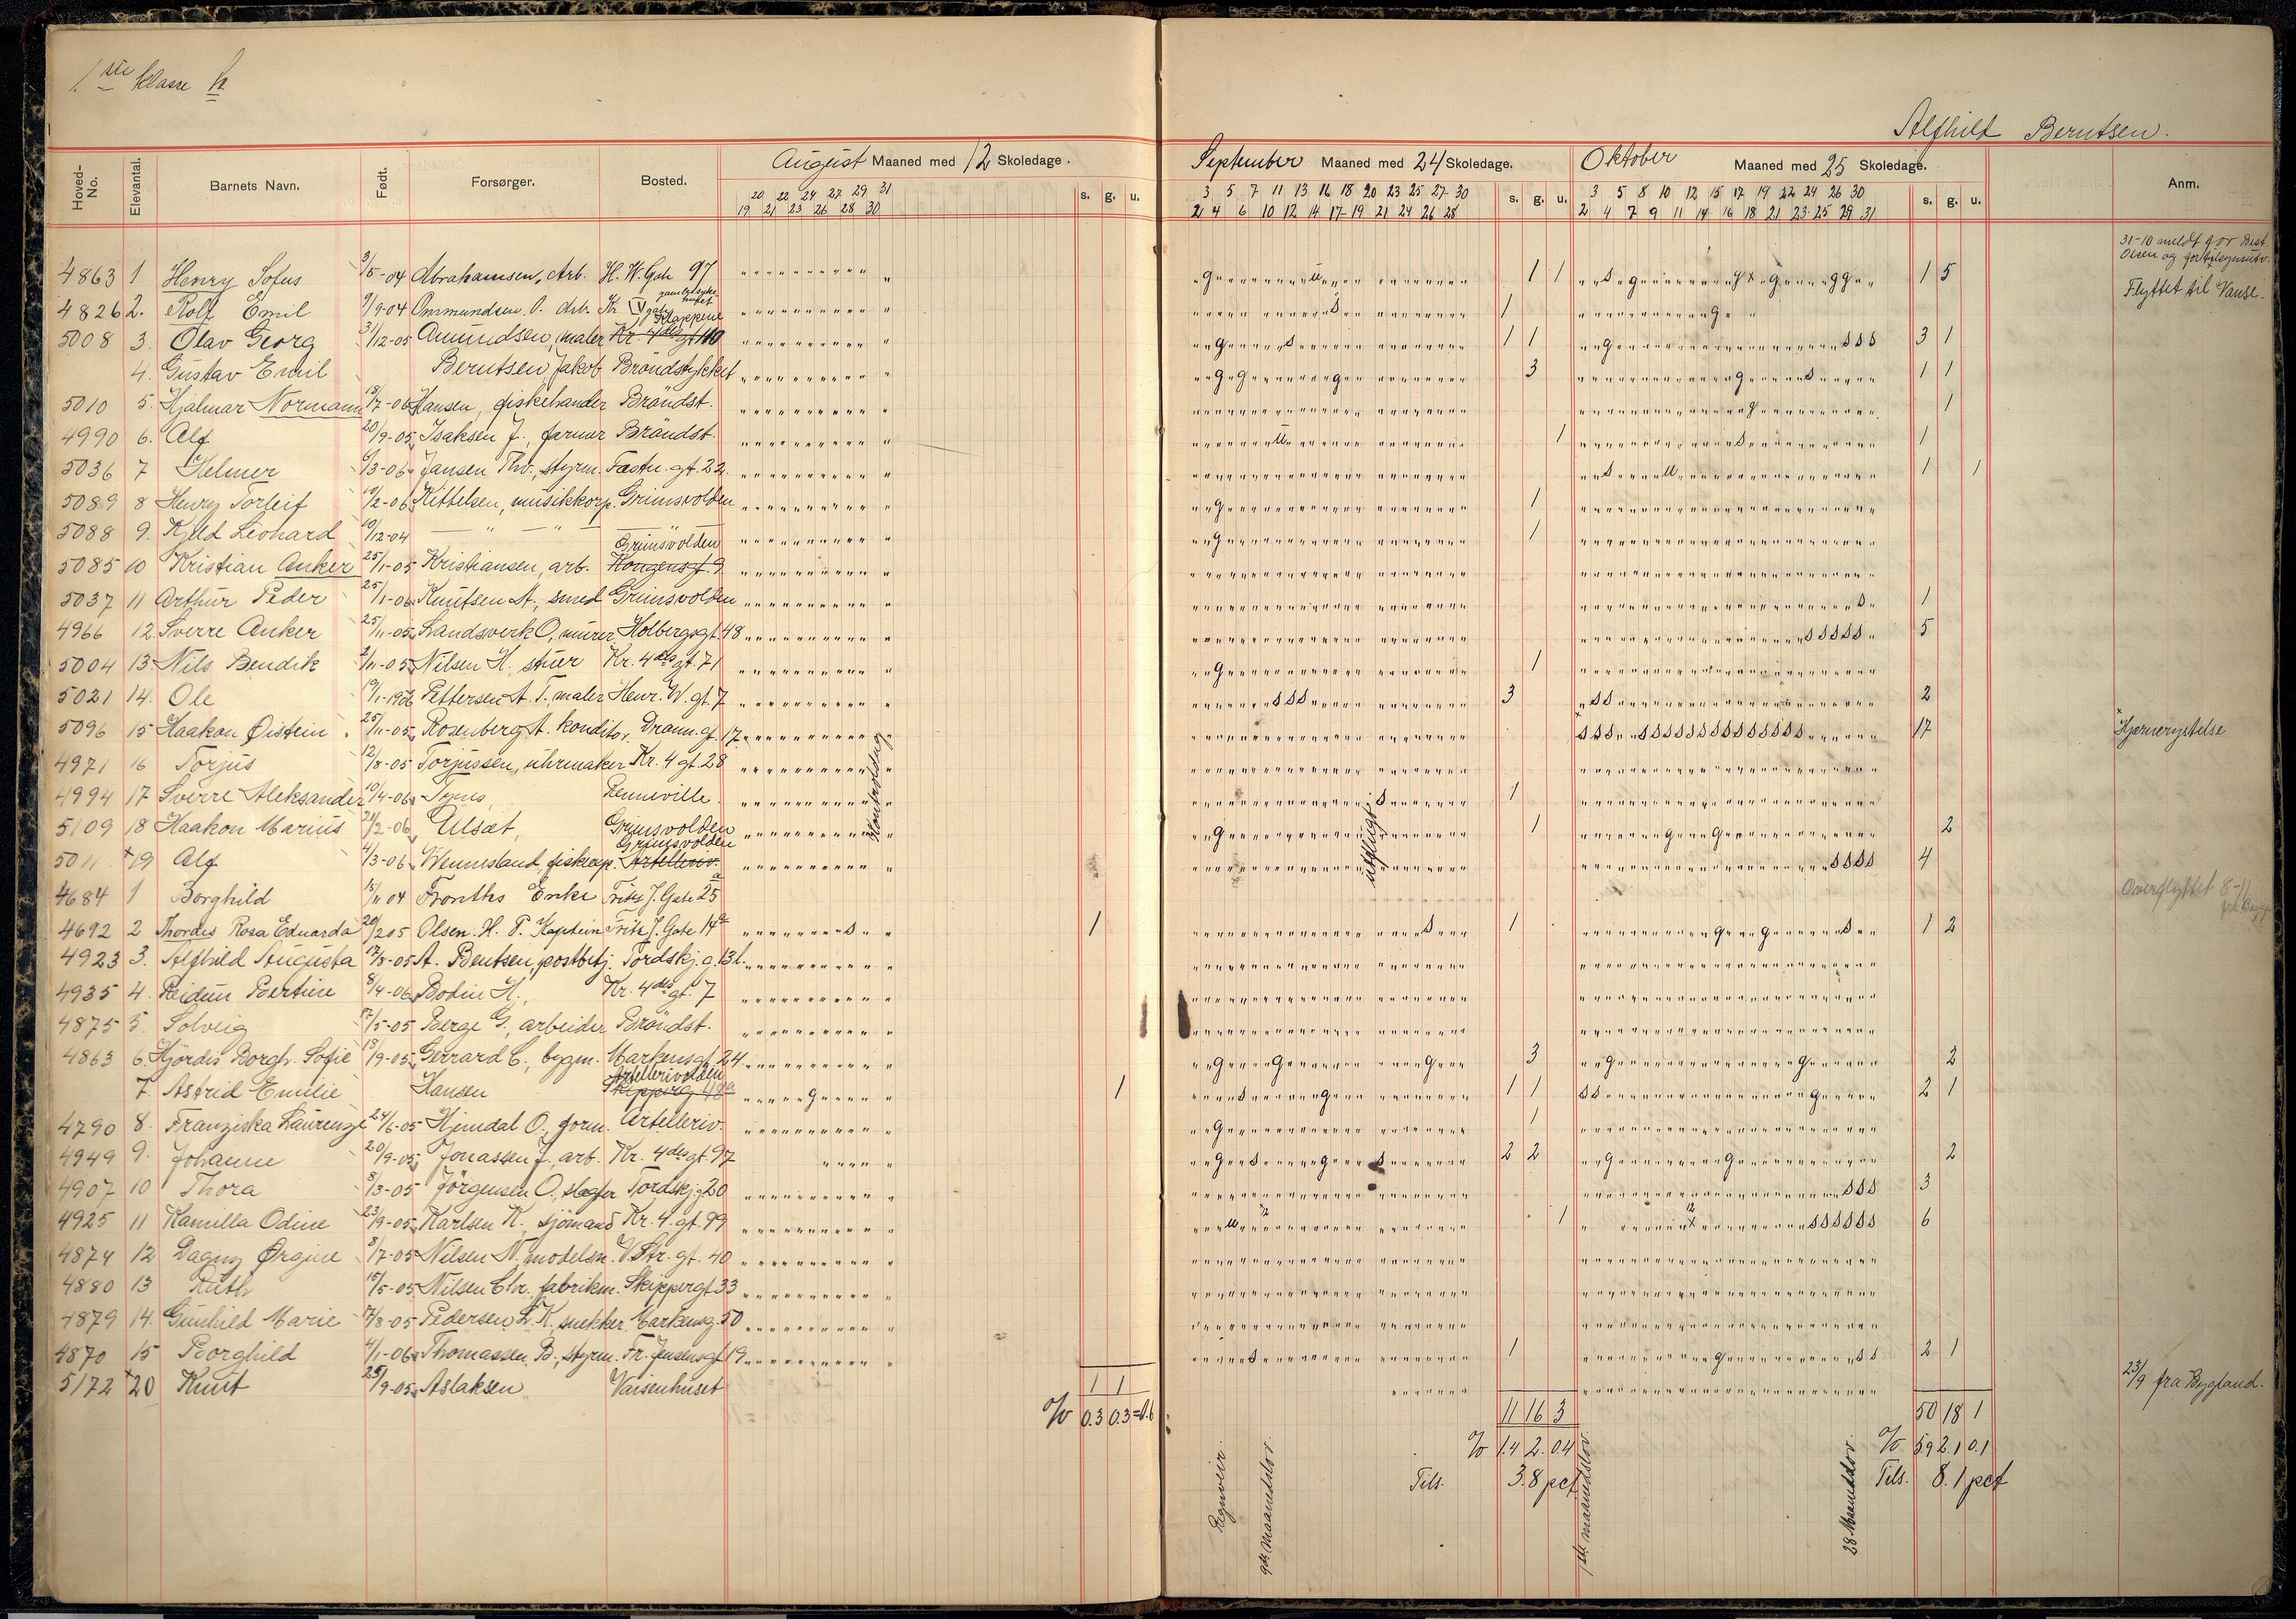 1ste klasse b
Alfhild Berntsen.
Hoved-No. Elevantal. Barnets Navn. Født. Forsørger. Bosted. August Maaned med 12 Skoledage. s. g. u. September Maaned med 24 Skoledage. s. g. u. Oktober Maaned med 25 Skoledage. s. g. u. Anm.
20 22 24 27 29 31 3 5 7 11 13 16 18 20 23 25 27 30 3 5 8 10 12 15 17 19 22 24 26 30
19 21 23 26 28 30 2 4 6 10 12 14 17 19 21 24 26 28 2 4 7 9 11 14 16 18 21 23 25 29 31
31-10 meldt
4863 1 Henry Sofus 3/5-04 Abrahamsen, Arb. H. W. Gate 97 1 1 1 5
Flyttet til Vanse.
4826 2. Rolf Emil 9/9-04 Ommundsen O. Arb. Kr. V gate Klappene 1
5008 3. Olav Georg 31/12-05 Amundsen, maler Kr. 4des gt 110 1 1 3 1
4. Gustav Emil Berntsen Jakob Brändstykket 3 1 1
5010 5. Hjalmar Normann 18/7-06 Hansen, fiskehandler Brändst. 1
4990 6. Alf 20/9-05 Isaksen J., farver Brändst. 1 1
5036 7 Helmer 6/3-06 Jansen Thv., styrm. Fæstn. gt. 22 1 1
5089 8 Henry Torleif 10/2-06 Kittelsen, musikkorp. Grimsvolden 1
5088 9. Kjeld Leonhard 10/12-04 — " — " — 1
Grimsvolden
5085 10 Kristian Anker 25/1-05 Kristiansen, arb. Kongensgt. 9
5037 11 Arthur Peder 25/1-06 Knutsen A., smed Grimsvolden 1
4966 12. Sverre Anker 25/11-05 Landsverk O, murer Holbergsgt. 48 5
5004 13. Nils Bendik 2/11-05 Nilsen H. stuer Kr. 4des gt. 71 1
5021 14. Ole 19/1-1906 Pettersen A. T. maler Henr. W. gt. 7 3 2
5096 15 Haakon Øistein 25/11-05 Rosenberg A. konditor, Dronn. g. 17. 17 Hjernerystelse
4971 16 Torjus 12/8-05 Torjussen, uhrmaker Kr. 4 gt. 28
4994 17 Sverre Aleksander 10/4-06 Renneville. 1
5109 18 Haakon Marius 21/2-06 Ulsæt, Grimsvolden 1 2
Grimsvolden
5011 19 Alf 4/3-06 Wennesland, fiskeop. Artelleriv. 4
Kontroldag
utflugt
4684 1 Borghild 15/11 04 Fronths Enke Fritz J. Gate 25 a Overflyttet 8-11
4692 2 Thordis Rosa Eduarda 20/2 05 Olsen. H. P. Kaptein Fritz J. Gate 14a 1 1 1 2
4923 3. Alfhild Augusta 17/8-05 A. Bentsen, postbetj. Tordskj. g. 13b.
4935 4. Reidun Bertine 8/4-06 Bodin H., Kr. 4des gt. 7
4875 5. Solveig 17/5-05 Berge G., arbeider Brändst.
4863 6. Hjördis Borgh. Sofie 18/9-05 Gerrard C., bygm. Markensgt. 24 3 2
Artellerivolden
7. Astrid Emilie Hansen Skipperg 48a 1 1 1 2 1
4790 8. Franziska Laurenze 24/6-05 Hjemdal O., form. Artelleriv. 1
4949 9. Johanne 20/9-05 Jonassen J., arb. Kr. 4des gt. 97 2 2 2
4907 10 Thora 8/3-05 Jörgensen O., slagter Tordskj. g 20 3
4925 11 Kamilla Odine 23/9-05 Karlsen K., sjömand Kr. 4. gt. 99 1 6
4874 12 Dagny Ørgine 8/7-05 Nilsen N. modelsn. V. Str. gt. 40
4880 13 Ruth 15/5-05 Nilsen Chr., fabrikm. Skippergt 33
4879 14. Gunhild Marie 17/8-05 Pedersen L. K. snekker Markensg. 50
4870 15 Borghild 4/1-06 Thomassen B., styrm. Fr. Jensensgt 19 1 2 1
5172 20 Knut 25/9-05 Aslaksen Vaisenhuset 23/9 fra Bygland.
1 1 11 16 3 50 18 1
% 0.3 0.3 = 0.6 % 1.4 2. 0.4 % 5.9 2.1 0.1
Tils. 3.8 pct. Tils. 8.1 pct
Regnveir.
9de Maanedslov.
1ste maanedslov
28 Maanedslov.